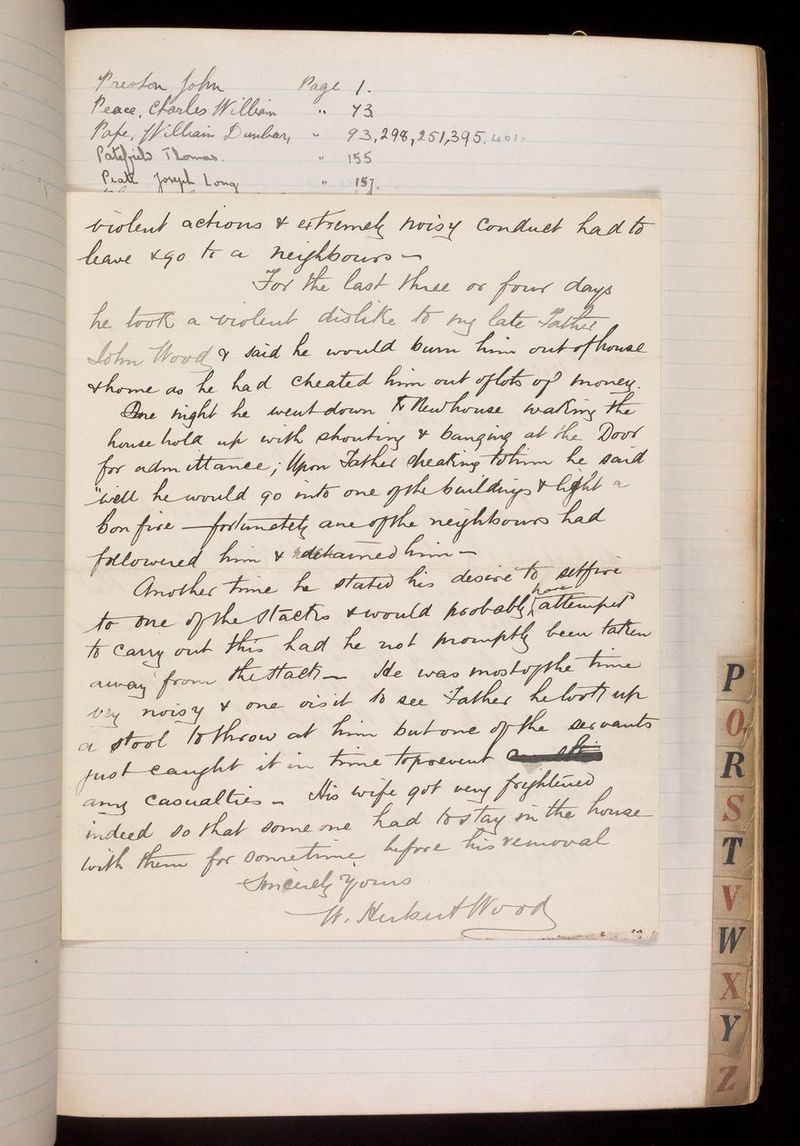 Preston John Page 1.
Peace, Charles William " 73
Pape, William Dunbar, " 93,298,251,395.401.
Patefield Thomas. " 155
Peatt Joseph Long " 157.
violent actions & extremely noisy conduct had to
leave & go to a neighbours —
For the last three or four days
he took a violent dislike to my late Father
John Wood & said he would burn him out of house
& home as he had cheated him out of lots of money.
One night he went down to Newhouse waking the
house hold up with shouting & banging at the Door
for admittance; Upon Father speaking to him he said
"well he would go into one of the buildings & light a
bon fire — fortunately one of the neighbours had
followered him & detained him —
Another time he stated his desire to setfire
to one of the stacks & would probably have attempted
to carry out this had he not promptly been taken
away from the stack — He was most of the time
very noisy & one visit to see Father he took up
a stool to throw at him but one of the servants
just caught it in time to prevent
any casualties — His wife got very frightened
indeed so that some one had to stay in the house
with them for sometime before his removal
Sincerely Yours
W. Herbert Wood
P
Q
R
S
T
V
W
X
Y
Z